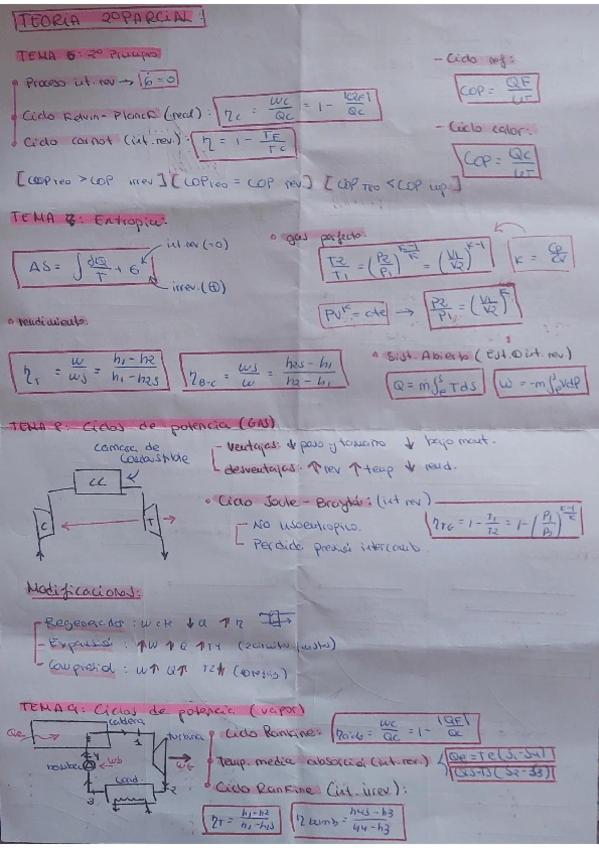 TEORIA 2º PARCIAL:
TEMA 6: 2º Principio
Proceso int. rev → σ = 0
Ciclo Kelvin-Planck (real): ηc = Wc/Qc = 1 - |QF|/Qc
Ciclo carnot (int. rev.): η = 1 - TF/Tc
- Ciclo ref:
COP = QF/WT
- Ciclo calor:
COP = Qc/WT
[COP reo > COP irrev] [COP reo = COP rev] [COP reo < COP imp.]
TEMA 7: Entropia:
int. rev (=0)
ΔS = ∫ δQ/T + σ
irrev. (+)
gas perfecto
T2/T1 = (P2/P1)^(K-1/K) = (V1/V2)^(K-1)
K = Cp/Cv
PV^K = cte → P2/P1 = (V1/V2)^K
rendimiento
ηT = W/Ws = h1 - h2/h1 - h2s
ηB-C = Ws/W = h2s - h1/h2 - h1
Sist. Abierto (Est. int. rev)
Q = ṁ∫Tds
W = -m∫vdp
TEMA 8: Ciclos de potencia (GAS)
camara de
combustible
CC
C
T
- ventajas: ↓ peso y tamaño ↓ bajo mant.
- desventajas: ↑ rev ↑ temp ↓ rend.
Ciclo Joule-Brayton: (int rev)
No isoentropico.
Perdida presión intercamb.
ηTG = 1 - T1/T2 = 1 - (P1/P2)^(K-1/K)
Modificaciones:
Regenerador: W cte ↓ Q ↑ η
Expansión: ↑W ↑Q ↑T4
Compresión: W↑ Q↑ T2↓
TEMA 9: Ciclos de potencia (vapor)
Qe
caldera
turbina
bomba
Wb
Wt
cond.
4
1
3
2
Ciclo Rankine: ηciclo = Wc/Qc = 1 - |QF|/Qc
Temp. media absorció (int. rev.)
Qe = Te(s1-s4)
Qs = Ts(s2-s3)
Ciclo Rankine (int. irrev):
ηT = h1-h2/h1-h2s
ηbomb = h4s-h3/h4-h3